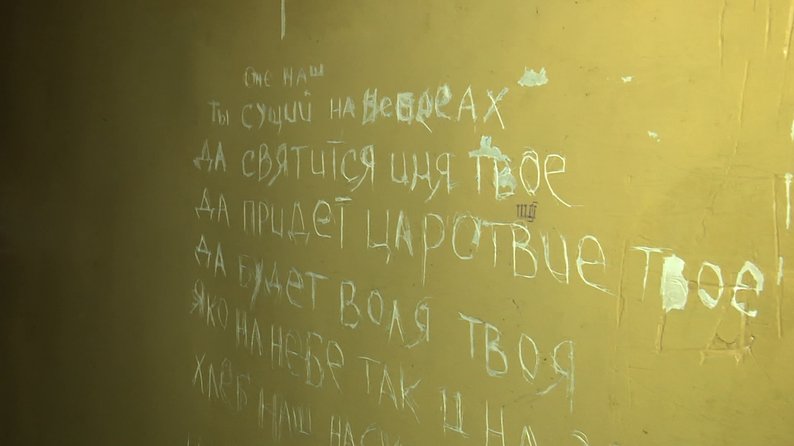 Отче наш
Ты сущий на небесах
Да святится имя Твое
Да придет царотвие Твое
Да будет воля Твоя
Яко на небе так и на
Хлеб наш